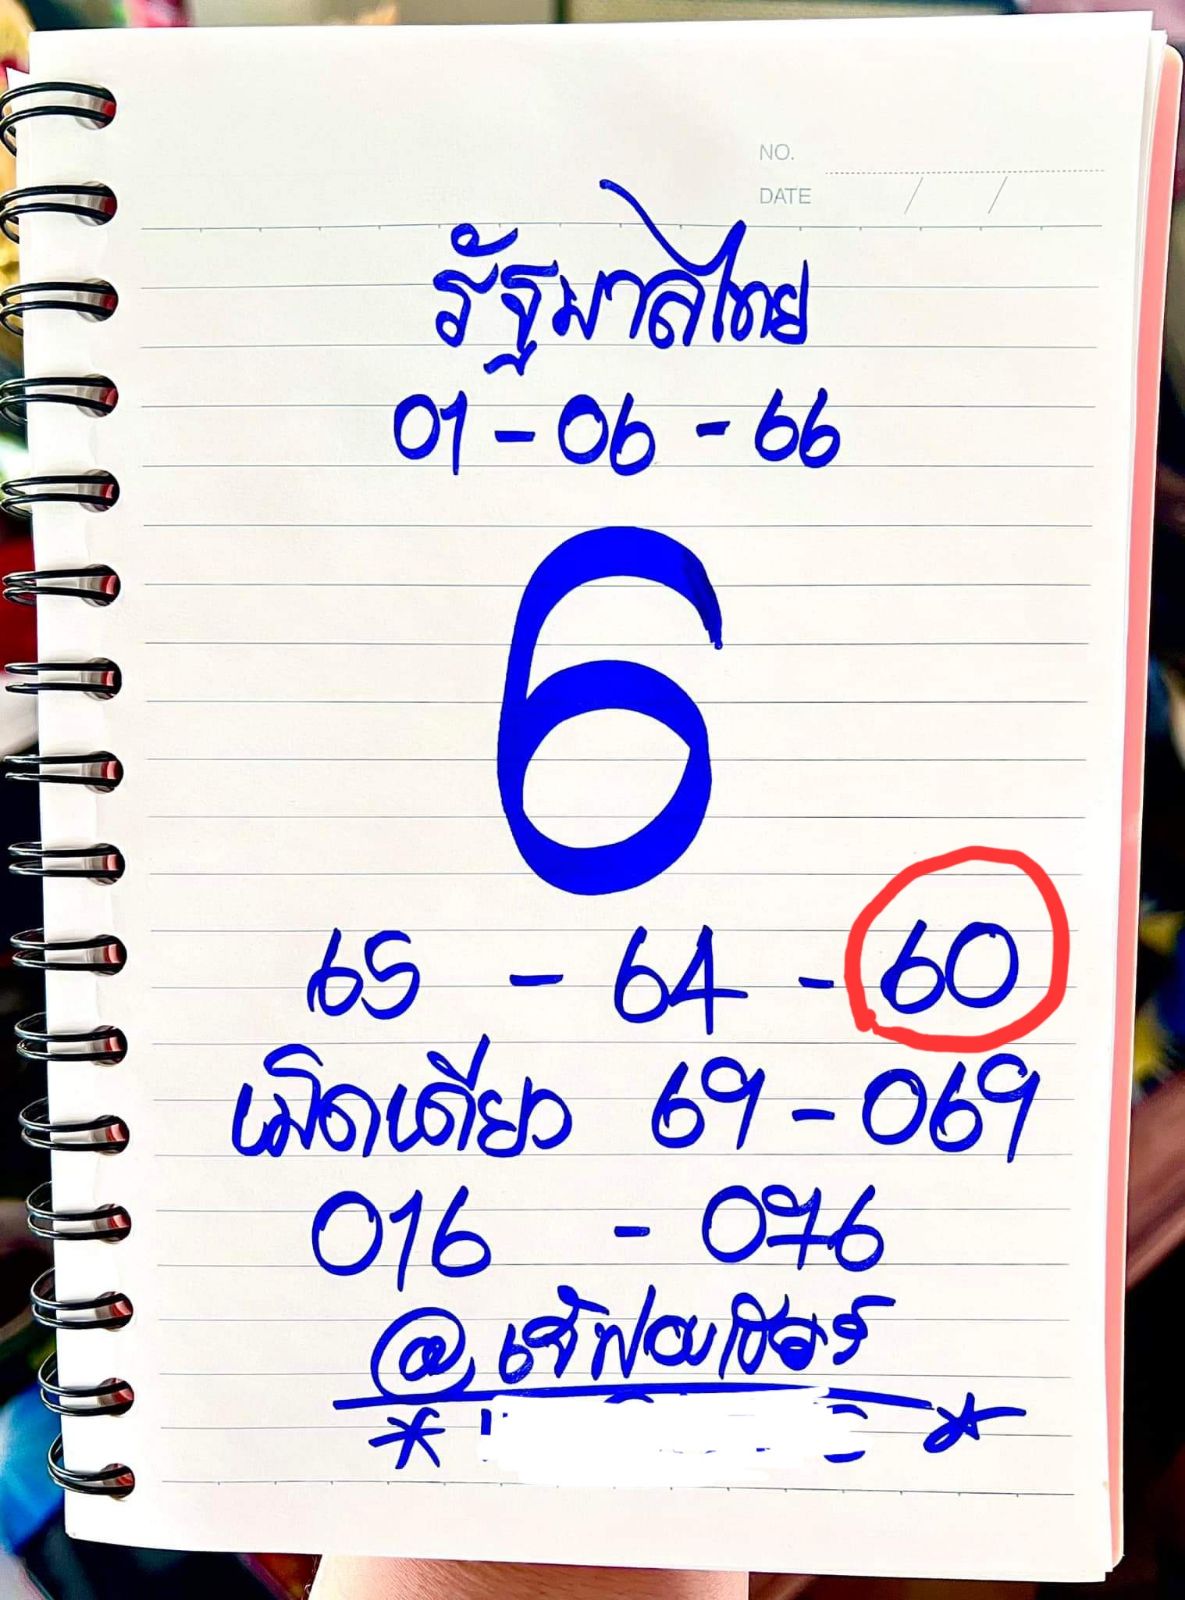 NO.
DATE / /
รัฐบาลไทย
01-06-66
6
65 - 64 - 60
เม็ดเดียว 69-069
016 - 076
@